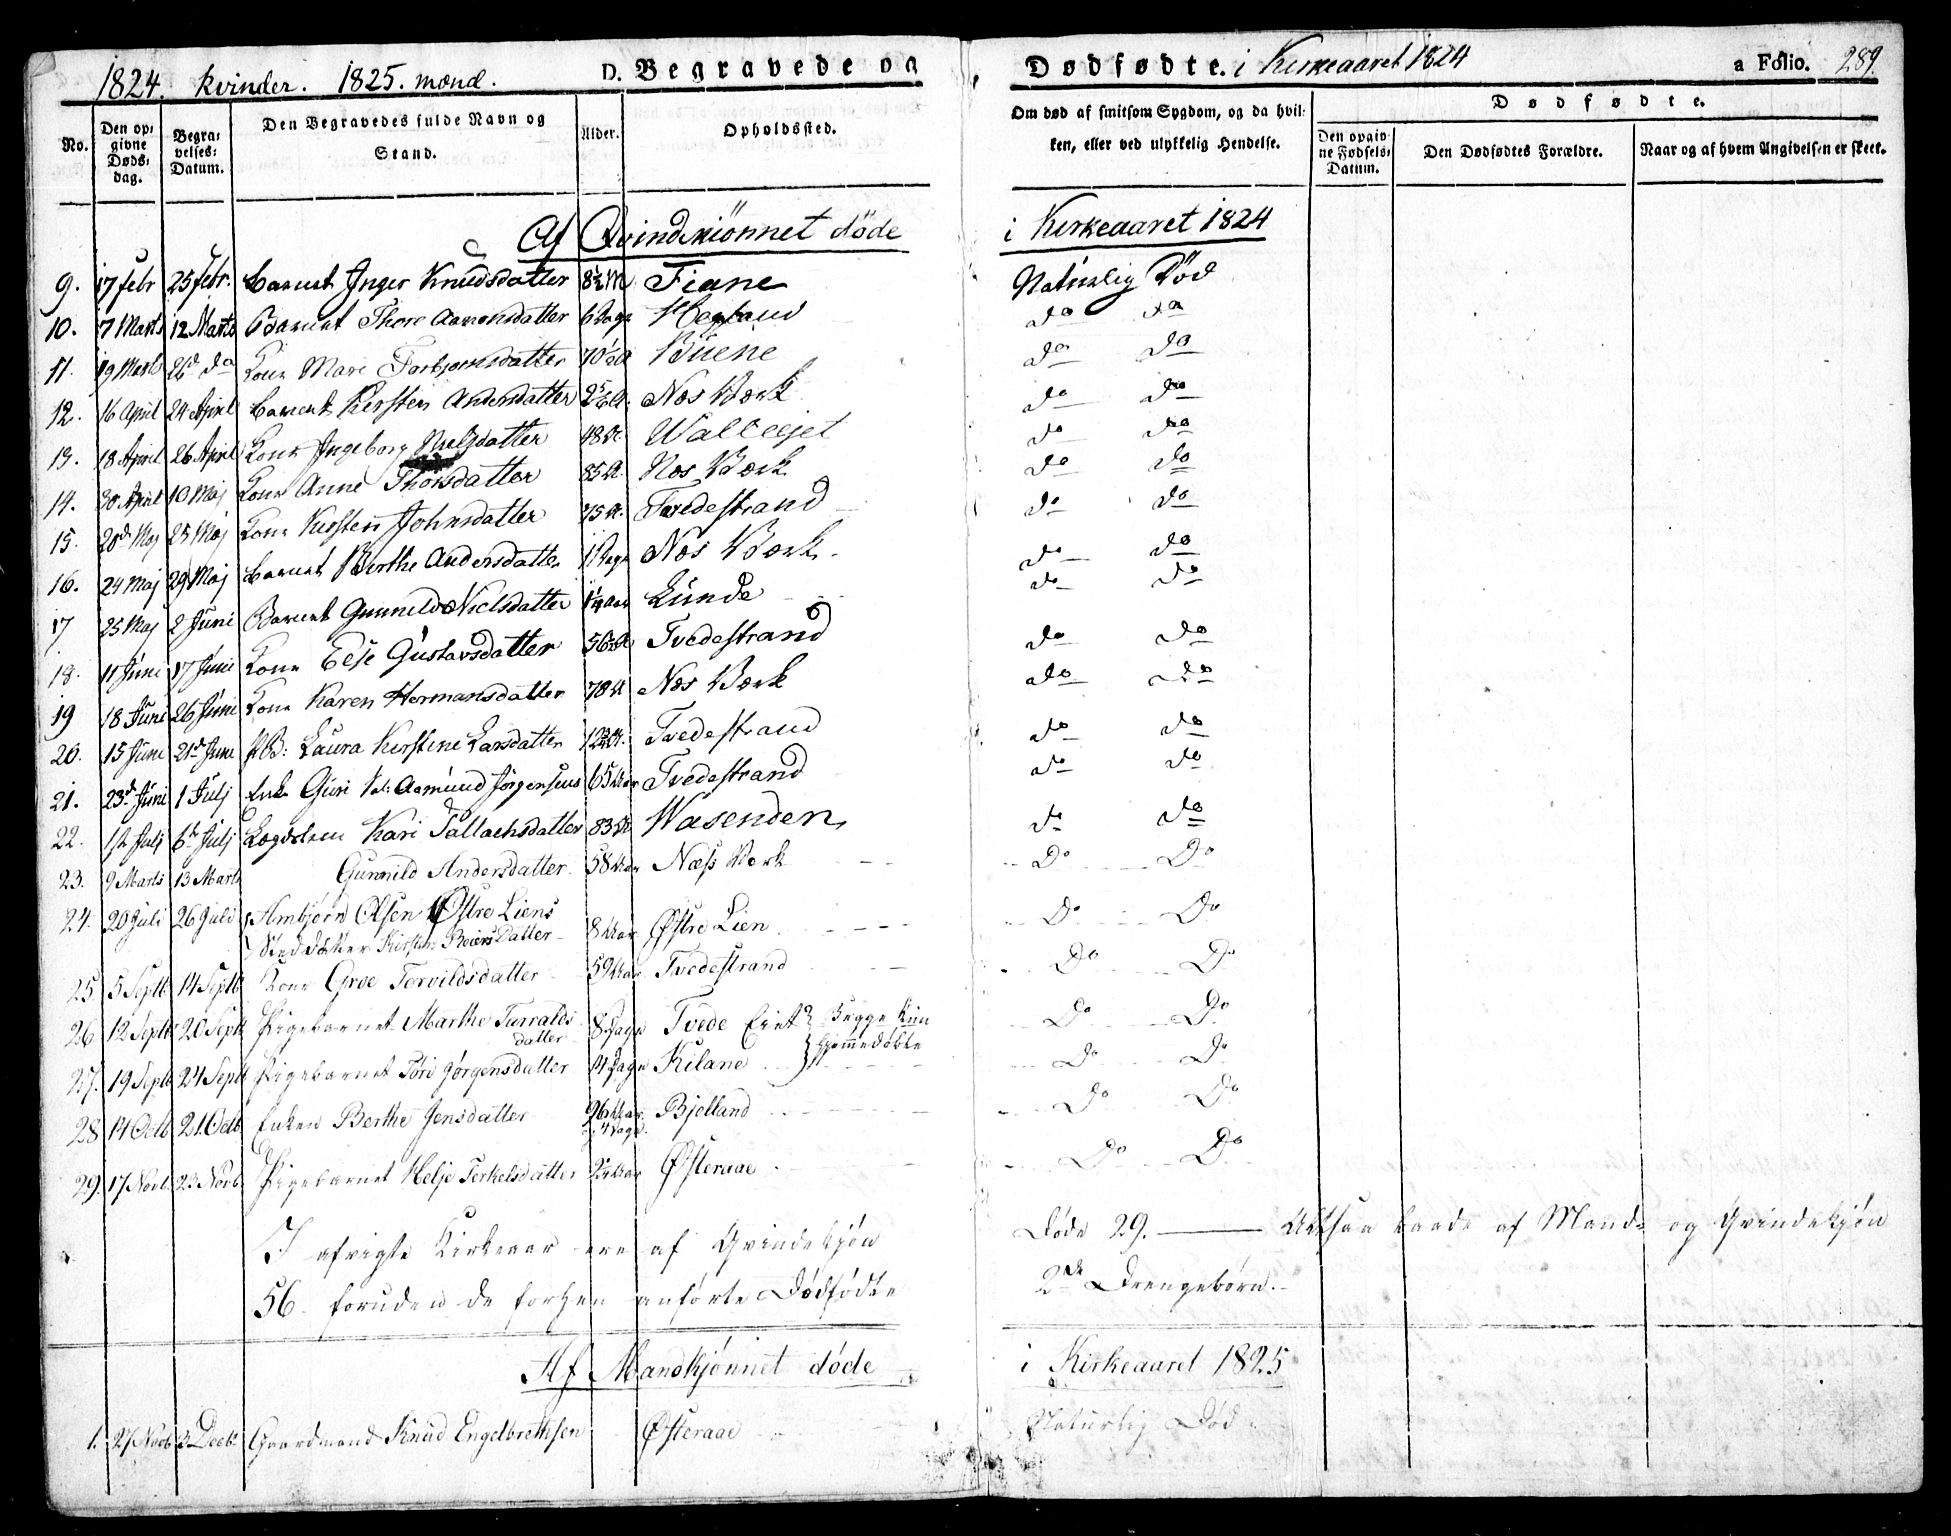 1824. kvinder. 1825. mænd. D. Begravede og Dødfødte. i Kirkeaaret 1824 a Folio. 289.
No. Den opgivne Dødsdag. Begravelses-Datum. Den Begravedes fulde Navn og Stand. Alder. Opholdssted. Om død af smitsom Sygdom, og da hvilken, eller ved ulykkelig Hendelse. Dødfødte. Den opgivne Fødsels-Datum. Den Dødfødtes Forældre. Naar og af hvem Angivelsen er skeet.
Af Qvindekiønnet døde i Kirkeaaret 1824
9. 17 febr 25 febr. Barnet Inger Knudsdatter 8½ M Fiane Naturlig Død
10. 7 Marts 12 Marts Barnet Thore Aanonsdatter 6 Dage Hegland do do
11. 19 Marts 26d do Kone Mari Torbjørnsdatter 70½ A Buene do do
12. 16 April 24 April Barnet Kirsten Andersdatter Næs Værk do do
13. 18 April 26 April Kone Ingeborg Nielsdatter 48 A. do do
14. 30 April 10 Maj Kone Anne Thorsdatter 85 A. Næs Værk do do
15. 20d Maj 25 Maj Kone Kirsten Johnsdatter 75 A. Tvedestrand do do
16. 24 Maj 29 Maj Barnet Berthe Andersdatter 11 Dage Næs Værk do do
17 25 Maj 2 Juni Barnet Gunnild Nielsdatter 1¼ Aar Lunde do do
18. 11 Juni 17 Juni Kone Else Gustavsdatter Tvedestrand do do
19 18 Juni 26 Juni Kone Karen Hermansdatter 78 A Næs Værk do do
20. 15 Juni 21d Juni PB: Laura Kirstine Larsdatter Tvedestrand do do
21. 23d Juni 1 Julj Enke Guri Sal: Aamund Jørgensens 65 Aar Tvedestrand do do
22. 1st Julj 6d Julj Lægdslem Kari Tallachsdatter 83 A Wasenden do do
23. 9 Marts 13 Marts Gunnild Andersdatter 58 Aar Næss Værk Do Do
24. 20 Juli 26 Juli Arnbjørn Olsen Østre Liens
Steddatter Kirsten Reiers Datter 8 Aar Østre Lien Do Do
25. 5 Septb 14 Septb Kone Groe Torvildsdatter 59 Aar Tvedestrand Do Do
26 12 Septb 20 Septb Pigebarnet Marthe Tarralds
datter 8 Dage Tvede Eiet } Begge kun Do Do
27. 19 Septb 24 Septb Pigebarnet Tóri Jørgensdatter 14 Dage Kilane } hjemmedøbte Do Do
28 14 Octb 21 Octb Enken Berthe Jensdatter 96 Aar
Bjelland Do Do
29. 17 Novb 23 Novb. Pigebarnet Helje Terkelsdatter Østeraae Do Do
I afvigte Kirkeaar ere af Qvindekjøn Døde 29. — Altsaa baade af Mand- og Qvindekjøn
56. foruden de forhen anførte Dødfødte 2de Drengebørn.
Af Mandkjønnet døde i Kirkeaaret 1825
1. 27 Novb 3 Decb. Gaardmand Knud Engelbrethsen Østeraae Naturlig Død